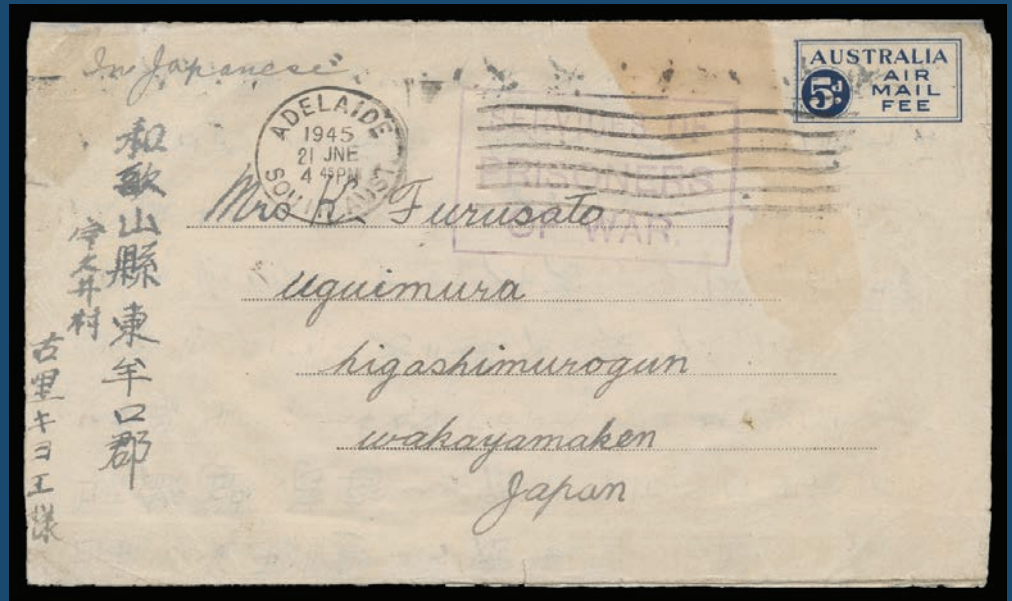 In Japanese
AUSTRALIA
5d AIR
MAIL
FEE
ADELAIDE
1945
21 JNE
4 45PM
SOUTH AUST
PRISONERS
OF WAR.
Mrs K. Furusato
uguimura
higashimurogun
wakayamaken
Japan
和歌山縣東牟口郡
宇久井村
古里キヨエ様